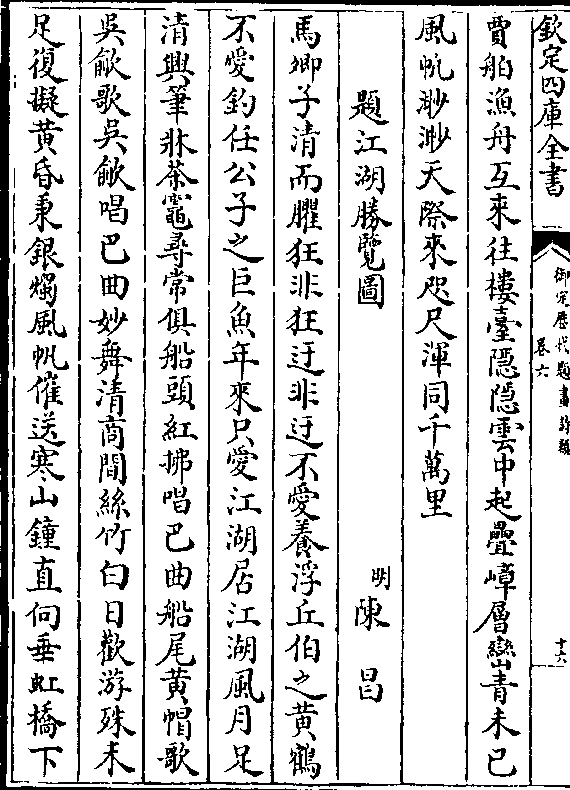 欽定四庫全書
御定歴代題畫詩類
卷六
十六
賈舶漁舟互來往樓臺隱隱雲中起疊嶂層巒青未已
風帆渺渺天際來咫尺渾同千萬里
題江湖勝覽圖
明陳昌
馬卿子清而臞狂非狂迂非迂不愛養浮丘伯之黄鶴
不愛釣任公子之巨魚年來只愛江湖居江湖風月足
清興筆牀茶竈尋常俱船頭紅拂唱巴曲船尾黄帽歌
吳歈歌吳歈唱巴曲妙舞清商間絲竹白日歡游殊未
足復擬黄昏秉銀燭風帆催送寒山鐘直向垂虹橋下